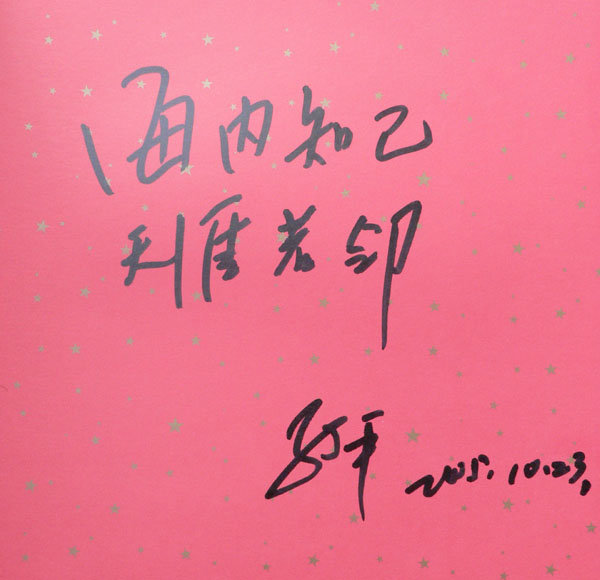 海内知己
天涯若邻
2015.10.23,